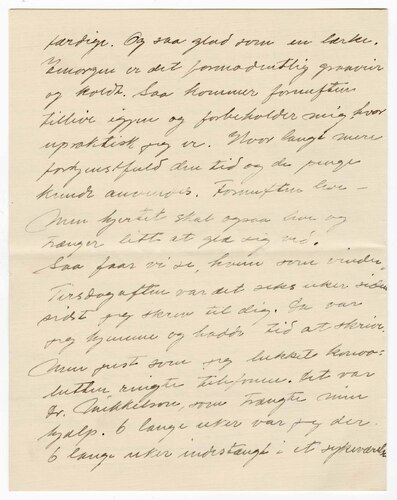 færdige. Og saa glad som en lærke.
Imorgen er det formodentlig graaveir
og koldt. Saa kommer fornuften
tillive igjen og forbeholder mig hvor
upraktisk jeg er. Hvor langt mere
fortjenstfuld den tid og de penge
kunde anvendes. Fornuften leve –
Men hjertet skal ogsaa leve og
trænger lidt at glæ sig ved.
Saa faar vi se, hvem som vinder.
Tirsdagaften var det seks uker siden
sidst jeg skrev til dig. Da var
jeg hjemme og hadde tid at skrive.
Men just som jeg lukket konvo-
lutten ringte telefonen. Det var
Dr. Mikkelson, som trængte min
hjælp. 6 lange uker var jeg der.
6 lange uker indestængt i et sykeværelse